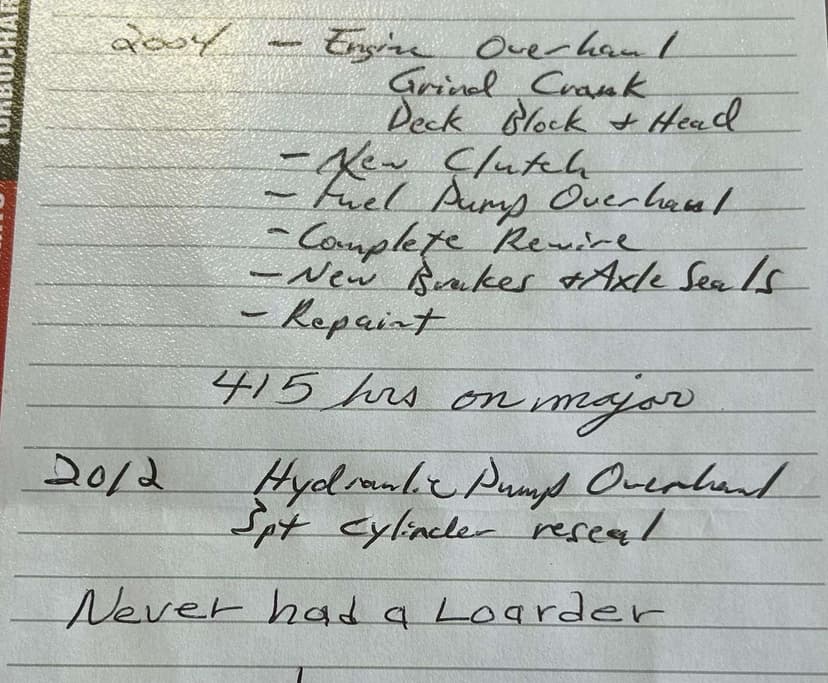 2004 - Engine Overhaul
Grind Crank
Deck Block & Head
- New Clutch
- Fuel Pump Overhaul
- Complete Rewire
- New Brakes & Axle Seals
- Repaint
415 hrs on major
2012 Hydraulic Pump Overhaul
3pt cylinder reseal
Never had a Loarder
TURBOCHAR